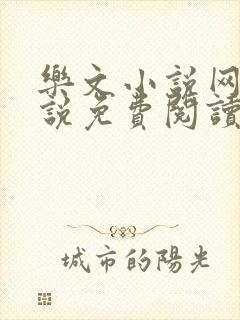 樂文小説网
說免費閱讀
城市的陽光